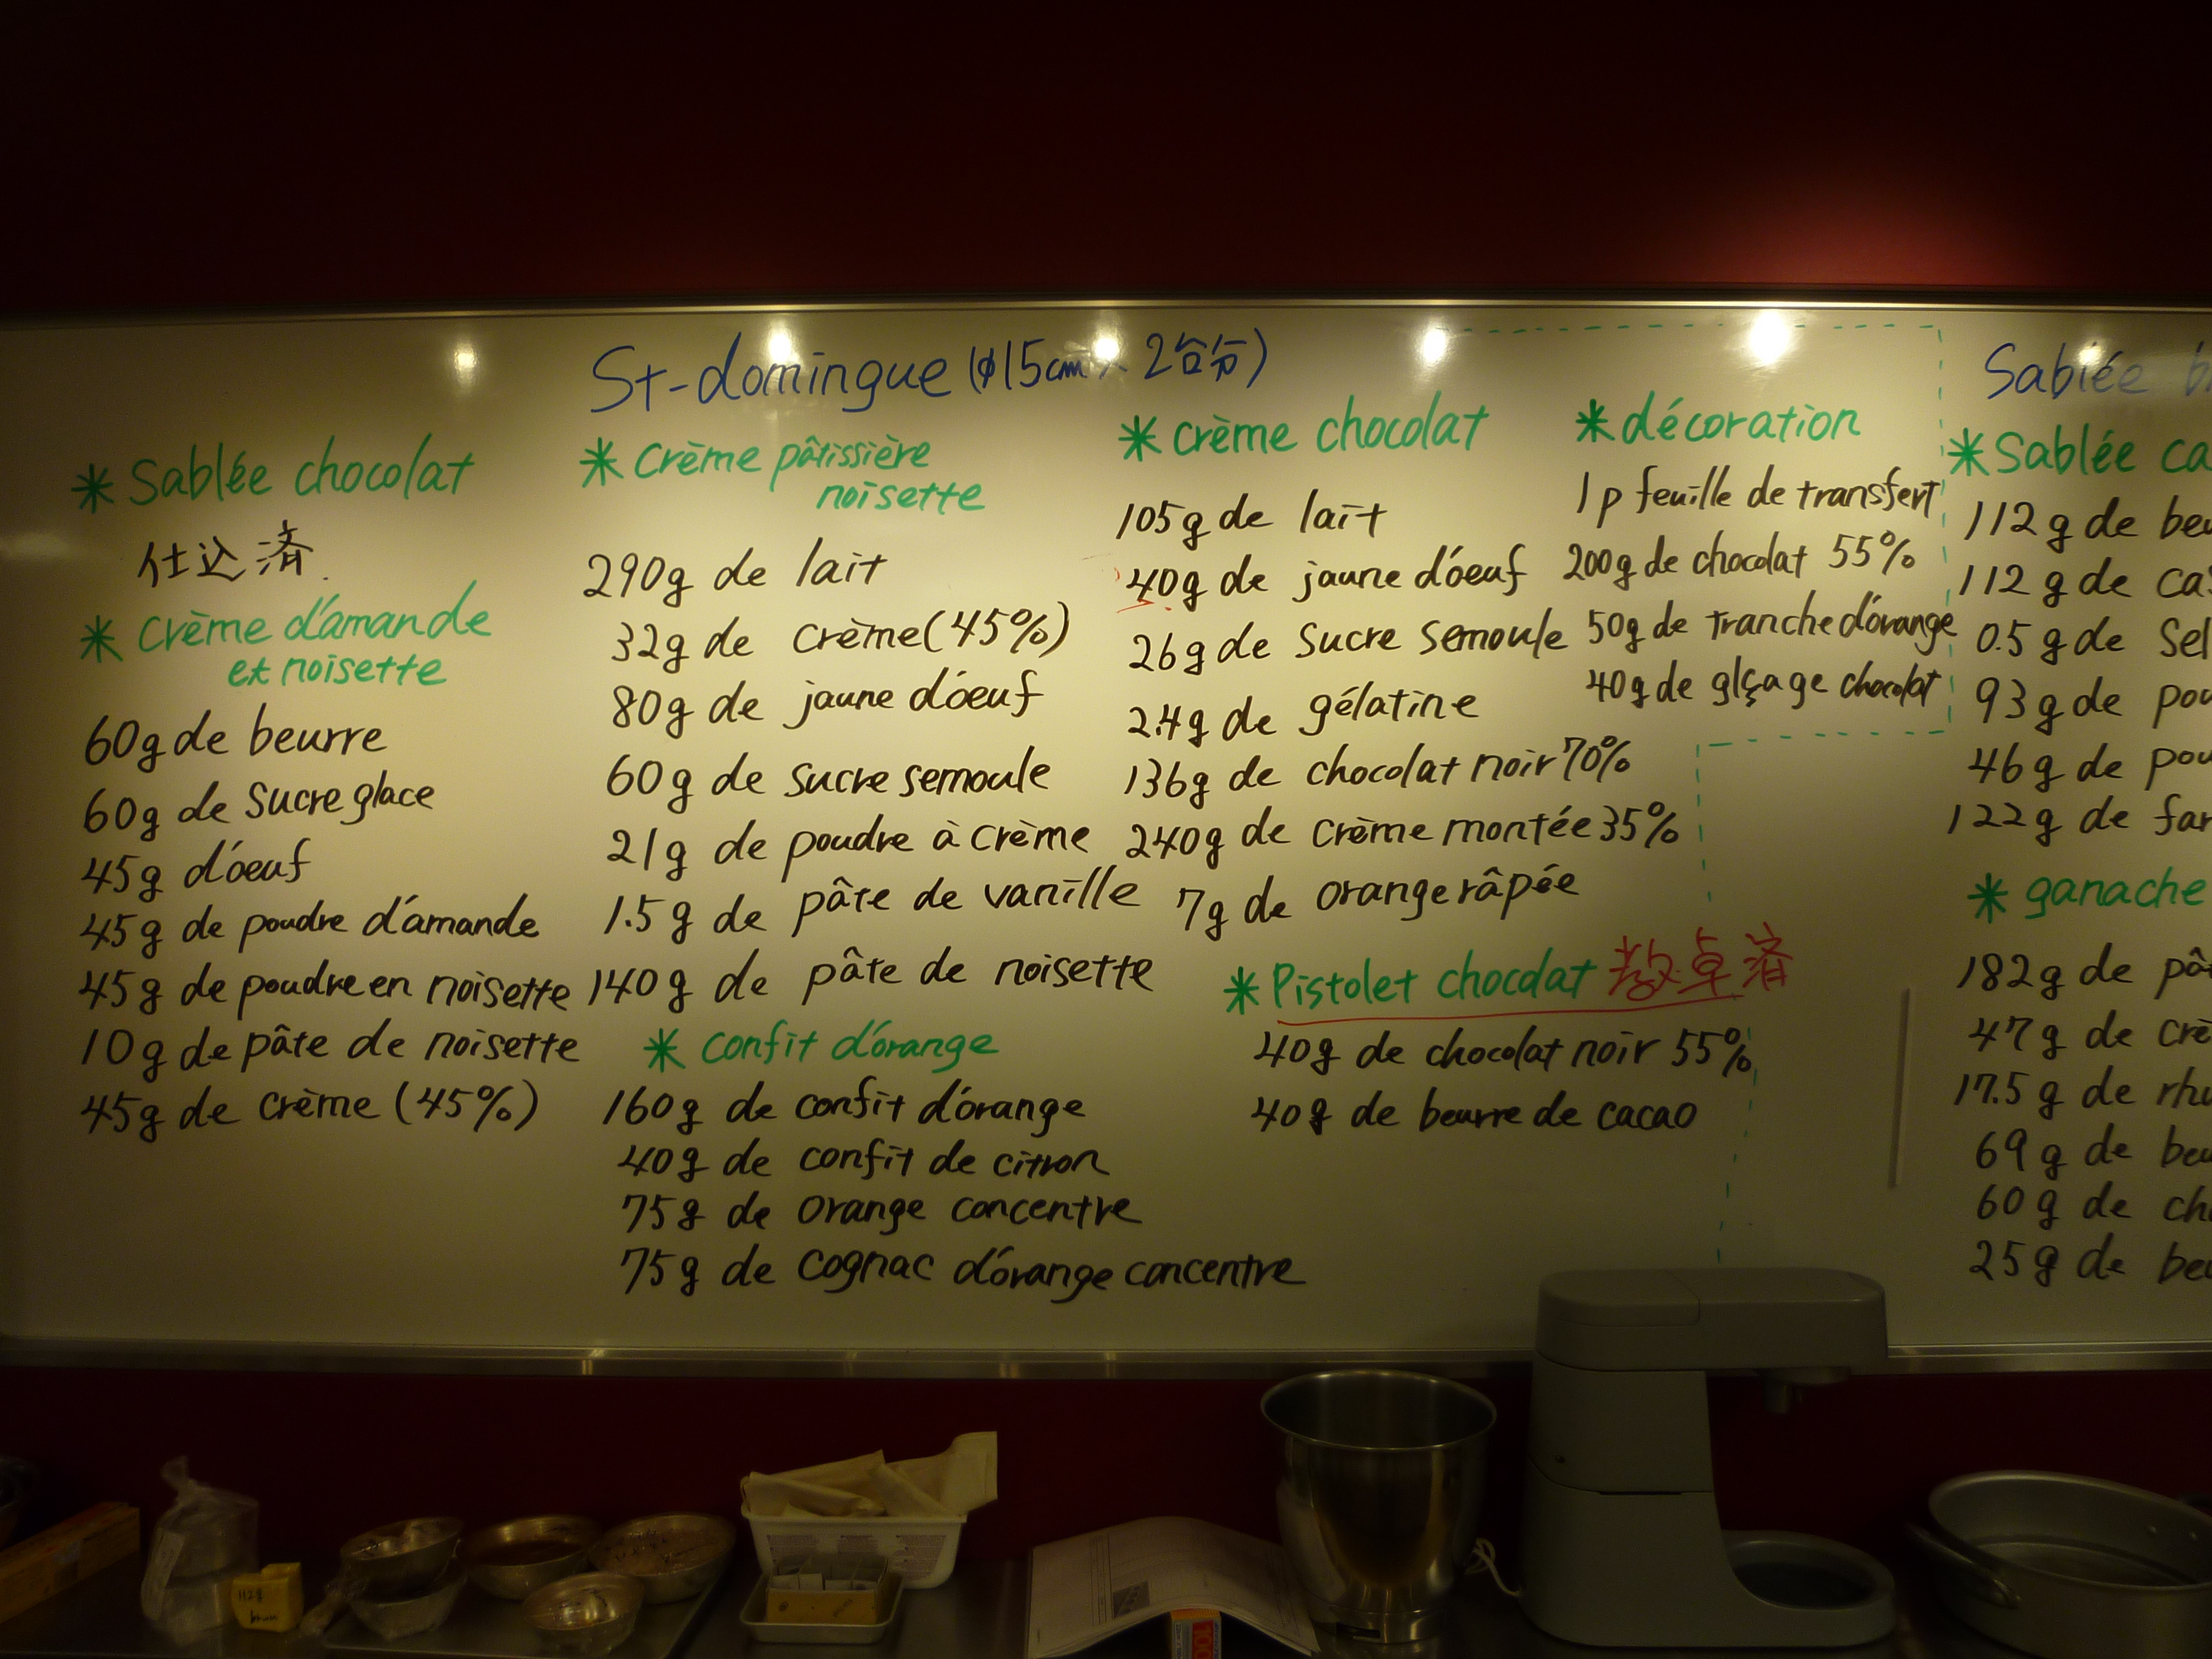 St-domingue (φ15cm × 2台分)
* Sablée chocolat
仕込済.
* Crème d'amande
et noisette
60g de beurre
60g de sucre glace
45g d'oeuf
45g de poudre d'amande
45g de poudre en noisette
10g de pâte de noisette
45g de crème (45%)
* Crème pâtissière
noisette
290g de lait
32g de crème (45%)
80g de jaune d'oeuf
60g de sucre semoule
21g de poudre à crème
1.5g de pâte de vanille
140g de pâte de noisette
* confit d'orange
160g de confit d'orange
40g de confit de citron
75g de orange concentre
75g de cognac d'orange concentre
* crème chocolat
105g de lait
40g de jaune d'oeuf
26g de sucre semoule
2.4g de gélatine
136g de chocolat noir 70%
240g de crème montée 35%
7g de orange râpée
* Pistolet chocolat 教卓済
40g de chocolat noir 55%
40g de beurre de cacao
* décoration
1p feuille de transfert
200g de chocolat 55%
50g de tranche d'orange
40g de glçage chocolat
Sablée b
* Sablée ca
112g de beu
112g de cas
0.5g de sel
93g de pou
46g de pou
122g de far
* ganache
182g de pât
47g de crè
17.5g de rhu
69g de beu
60g de ch
25g de beu
112g